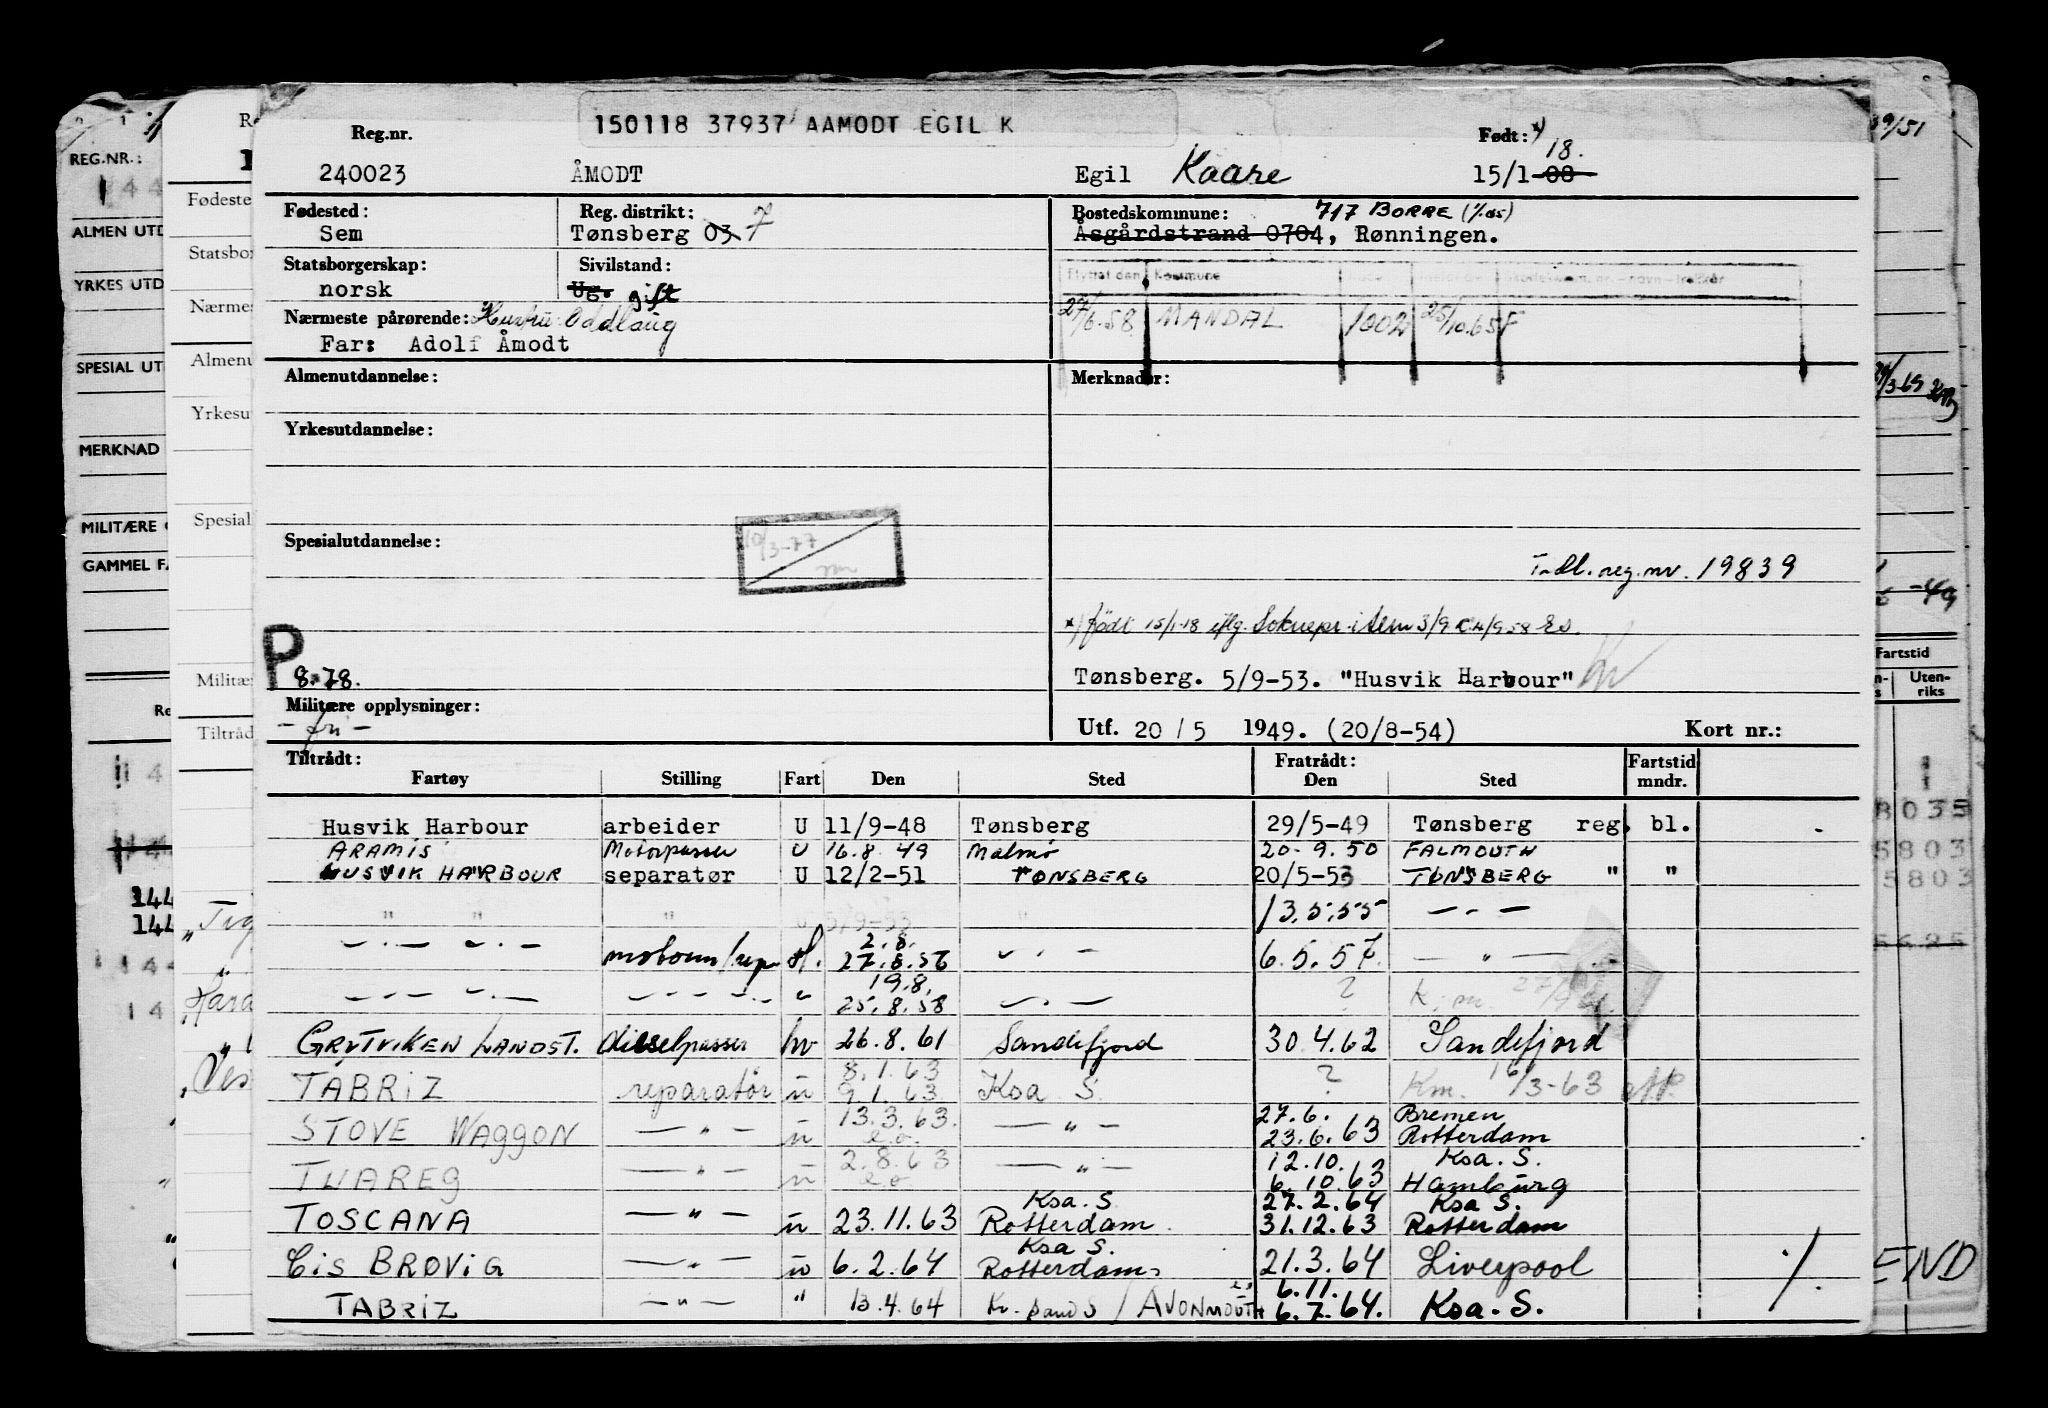 150118 37937 AAMODT EGIL K
Reg.nr. Født: *)
240023 ÅMODT Egil Kaare 15/1-08 18.
Fødested: Reg. distrikt: Bostedskommune: 717 BORRE
Sem Tønsberg 03 7 Åsgårdstrand 0704, Rønningen.
Statsborgerskap: Sivilstand: Flyttet den Kommune
norsk Ug. gift 27/6.58 MANDAL 1002 25/10.65 F
Nærmeste pårørende: Hustru: Oddlaug
Far: Adolf Åmodt
Almenutdannelse: Merknader:
Yrkesutdannelse:
Spesialutdannelse: 10/3-77
Tidl. reg. nr. 19839
*) født 15/1-18 iflg. Soknepr. i Sem 3/9
P 8-78. Tønsberg. 5/9-53. "Husvik Harbour"
Militære opplysninger:
- fri - Utf. 20/5 1949. (20/8-54) Kort nr.:
Tiltrådt: Fratrådt: Fartstid
Fartøy Stilling Fart Den Sted Den Sted mndr.
Husvik Harbour arbeider U 11/9-48 Tønsberg 29/5-49 Tønsberg reg. bl.
ARAMIS Motorpasser U 16.8.49 Malmö 20.9.50 FALMOUTH
HUSVIK HARBOUR separatør U 12/2-51 TØNSBERG 20/5-53 TØNSBERG " "
" " " U 5/9-53 " 13.5.55 — " —
— " — " — 2.8. 27.8.56 — " — 6.5.57. — " —
— " — " — — " — " 19.8. 25.8.58 — " — ?
GRYTVIKEN LANDST. dieselpasser hv 26.8.61 Sandefjord 30.4.62 Sandefjord
TABRIZ reparatør u 8.1.63 9.1.63 Ksa S. ? Km. 16/3-63
STOVE WAGGON — " — u 13.3.63. e.o. — " — 27.6. 23.6.63 Bremen Rotterdam
TUAREG — " — u 2.8.63 e.o. — " — 12.10. 6.10.63 Ksa. S. Hamburg
TOSCANA — " — u 23.11.63 Ksa. S Rotterdam. 27.2.64 31.12.63 Ksa S. Rotterdam
Cis BROVIG — " — u 6.2.64 Ksa S. Rotterdam 21.3.64 Liverpool
TABRIZ — " — " 13.4.64 Kr. sand S / AVONMOUTH 6.11. 6.7.64. Ksa. S.
REG.NR.:
ALMEN UTD
YRKES UTD
SPESIAL UT
MERKNAD
MILITÆRE
GAMMEL FA
Fødeste
Statsbor
Nærmes
Almenu
Yrkesu
Spesial
Militæ
Tiltråd
144
144
Fartstid
Uten-
riks
8035
5803
5803
5625
END